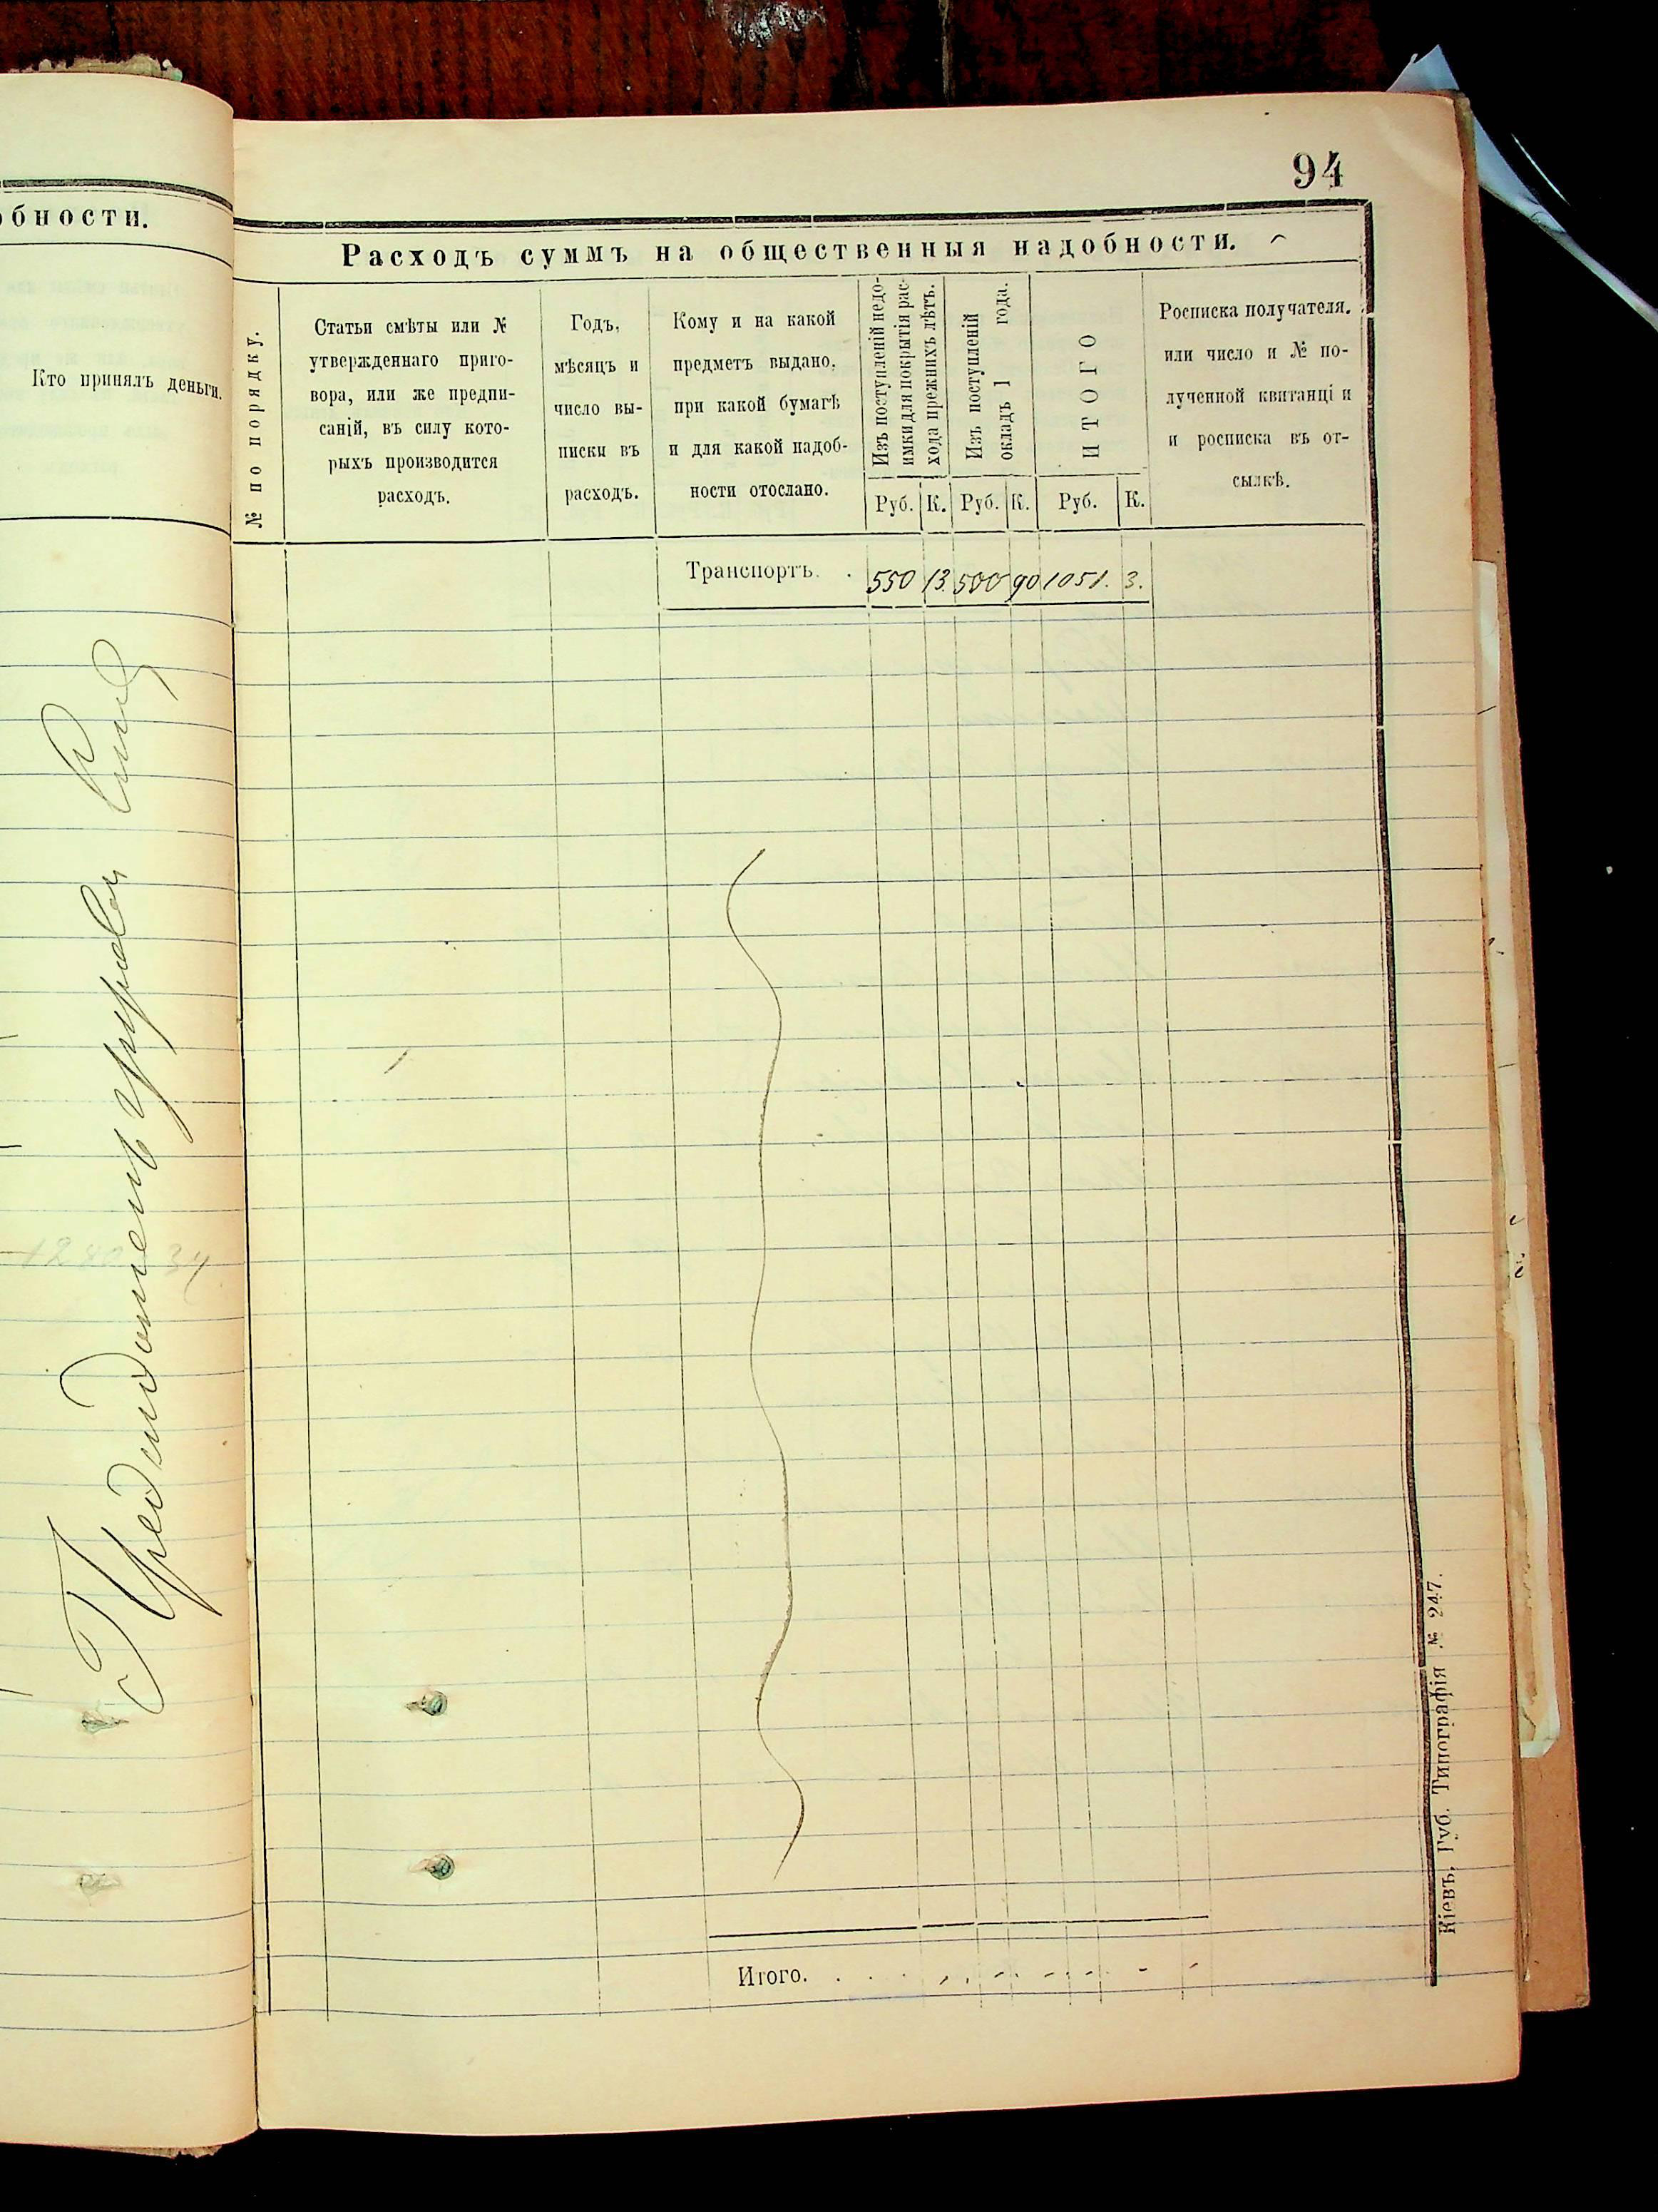 обности.
Кто принялъ деньги.
94
Расходъ суммъ на общественныя надобности.
№ по порядку.
Статьи смѣты или №
утвержденнаго приго-
вора, или же предпи-
саній, въ силу кото-
рыхъ производится
расходъ.
Годъ,
мѣсяцъ и
число вы-
писки въ
расходъ.
Кому и на какой
предметъ выдано,
при какой бумагѣ
и для какой надоб-
ности отослано.
Изъ поступленій недо-
имки для покрытія рас-
хода прежнихъ лѣтъ.
Изъ поступленій
окладъ 1 года.
ИТОГО
Росписка получателя.
или число и № по-
лученной квитанці и
и росписка въ от-
сылкѣ.
Руб. К. Руб. К. Руб. К.
Транспортъ. . 550 13. 500 90 1051. 3.
Итого. . . . .
Кіевъ, Губ. Типографія № 247.